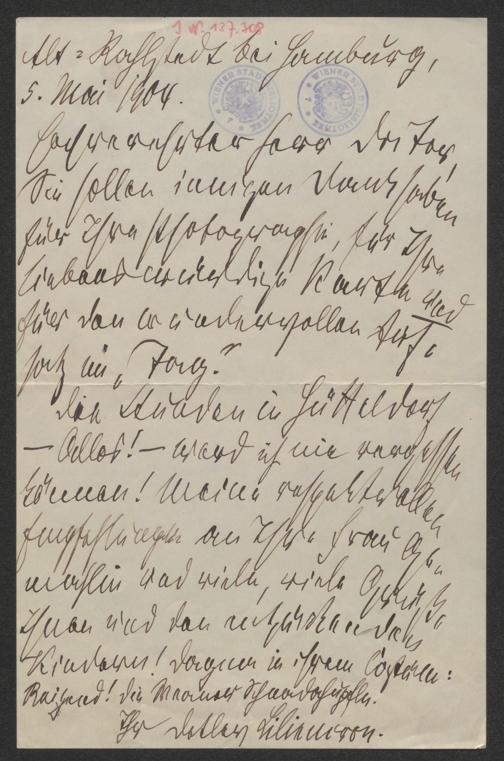 J. N. 137.308
Alt-Rahlstedt bei Hamburg,
5. Mai 1904.
WIENER STADTBIBLIOTHEK
WIENER STADTBIBLIOTHEK
Hochverehrter Herr Doctor,
Sie sollen innigen Dank haben
für Ihre Photographie, für Ihre
liebenswürdige Karte und
für den wundervollen Auf-
satz im „Tag."
Die Stunden in Hütteldorf
— Alles! — werd ich nie vergessen
können! Meine respektvollen
Empfehlungen an Ihre Frau Ge-
mahlin und viele, viele Grüße
Ihnen und den entzückenden
Kindern! Dagmar in ihrem Costüm:
Reizend! Die
Ihr Detlev Liliencron.